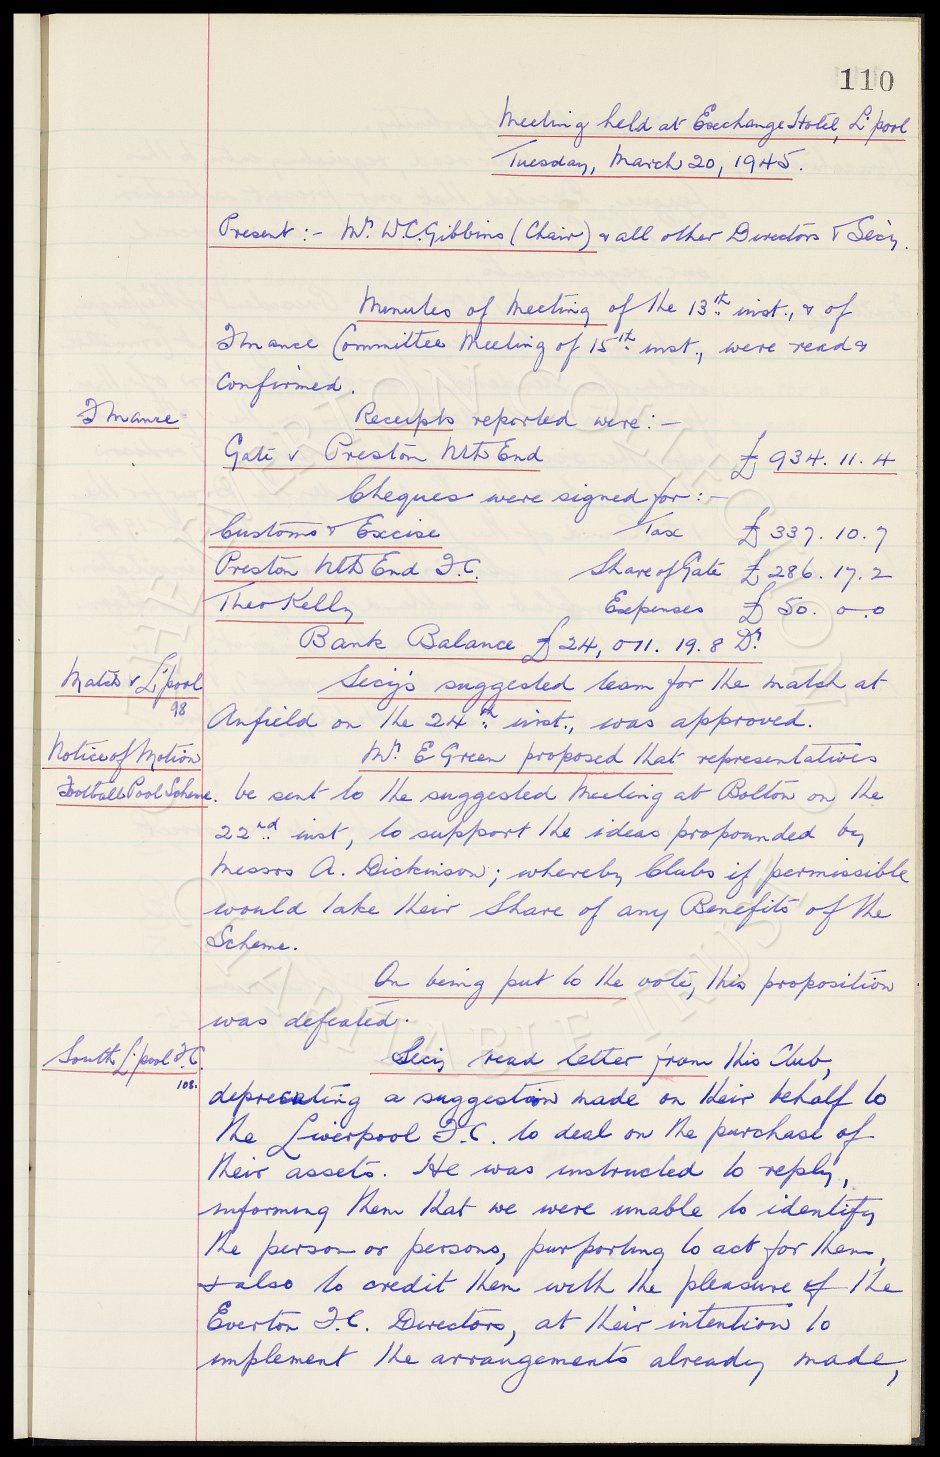 110
Meeting held at Exchange Hotel, L'pool
Tuesday, March 20, 1945.
Present :- Mr. W.C. Gibbins (Chair) & all other Directors & Secy.
Minutes of Meeting of the 13th inst., & of
Finance Committee Meeting of 15th inst., were read &
confirmed.
Finance
Receipts reported were :-
Gate v Preston Nth End £ 934. 11. 4
Cheques were signed for :-
Customs & Excise Tax £ 337. 10. 7
Preston Nth End F.C. Share of Gate £ 286. 17. 2
Theo Kelly Expenses £ 50. 0. 0
Bank Balance £ 24,011. 19. 8 Dr.
Match v L'pool
98
Secy's suggested team for the match at
Anfield on the 24th inst., was approved.
Notice of Motion
Football Pool Scheme.
Mr. E Green proposed that representatives
be sent to the suggested Meeting at Bolton on the
22nd inst, to support the ideas propounded by
Messrs A. Dickinson; whereby Clubs if permissible
would take their Share of any Benefits of the
Scheme.
On being put to the vote, this proposition
was defeated.
South L'pool F.C.
108.
Secy read letter from this Club,
deprecating a suggestion made on their behalf to
the Liverpool F.C. to deal on the purchase of
their assets. He was instructed to reply,
informing them that we were unable to identify
the person or persons, purporting to act for them,
& also to credit them with the pleasure of the
Everton F.C. Directors, at their intention to
implement the arrangements already made,
THE EVERTON COLLECTION
CHARITABLE TRUST